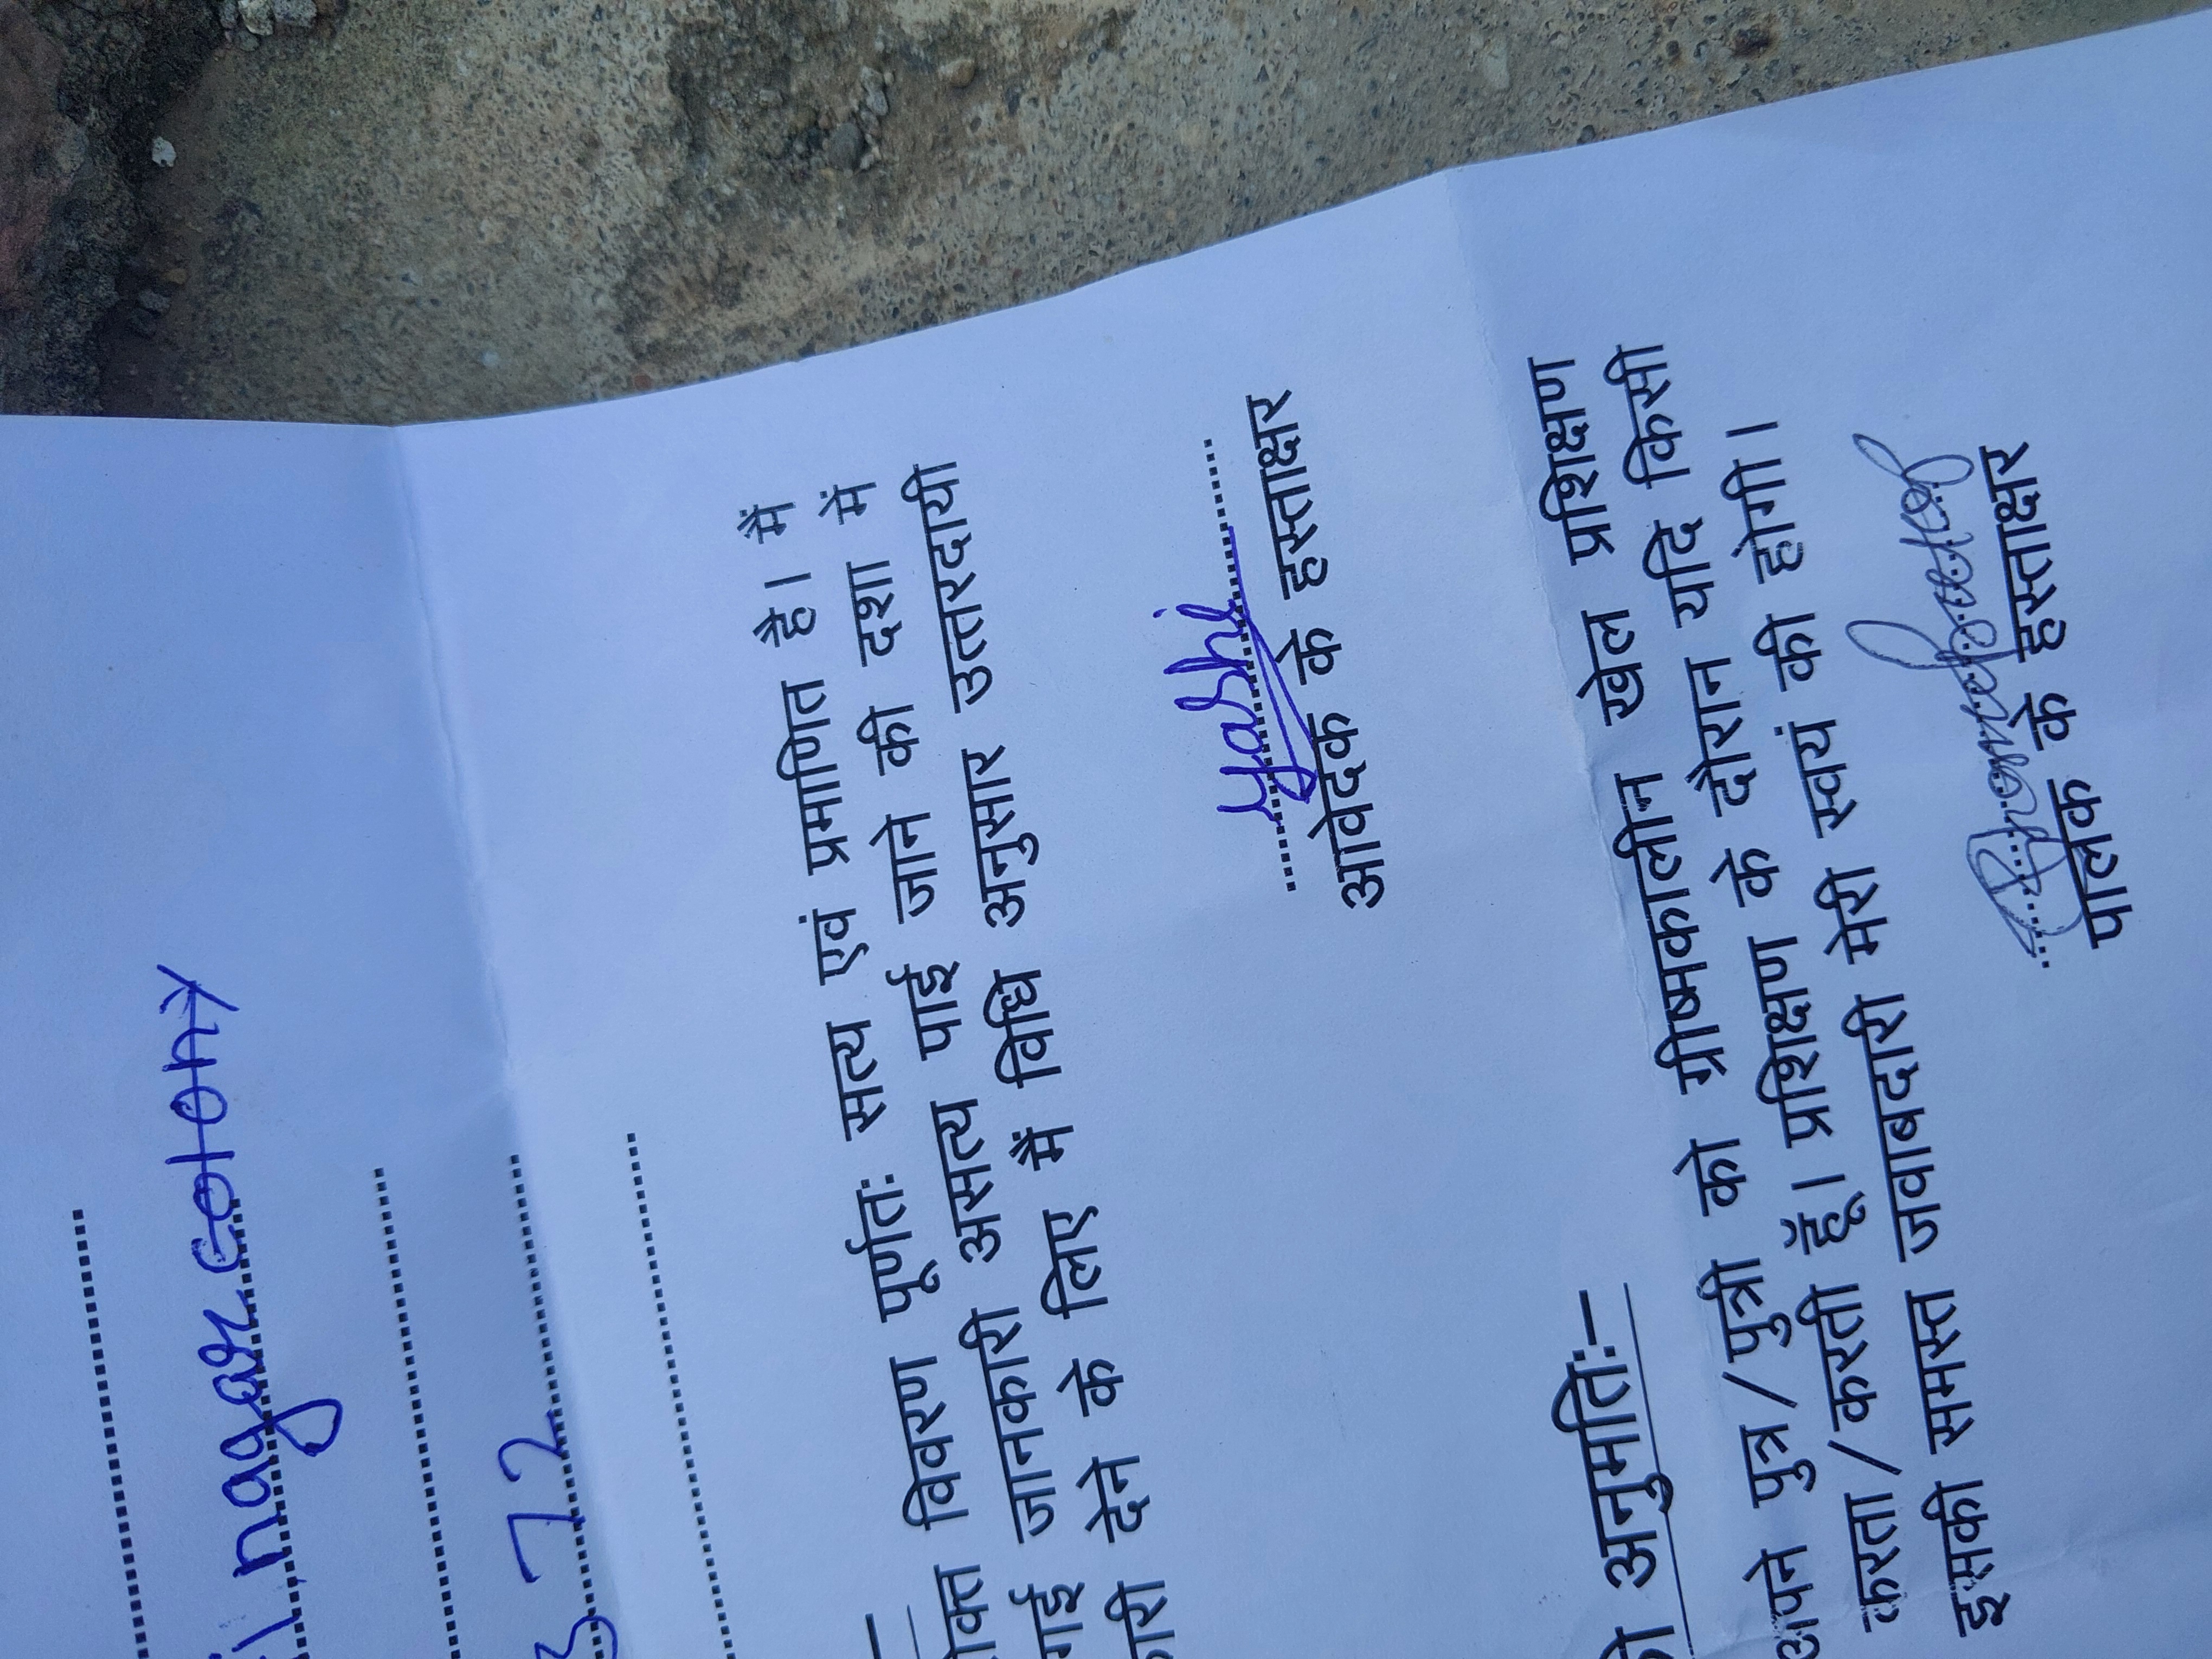 nagar colony
72
विवरण पूर्णतः सत्य एवं प्रमाणित है। मैं
गई जानकारी असत्य पाई जाने की दशा में
देने के लिए मैं विधि अनुसार उत्तरदायी
Yashi
आवेदक के हस्ताक्षर
अनुमतिः–
अपने पुत्र/पुत्री को ग्रीष्मकालीन खेल प्रशिक्षण
करता/करती हूँ। प्रशिक्षण के दौरान यदि किसी
इसकी समस्त जवाबदारी मेरी स्वयं की होगी।
पालक के हस्ताक्षर